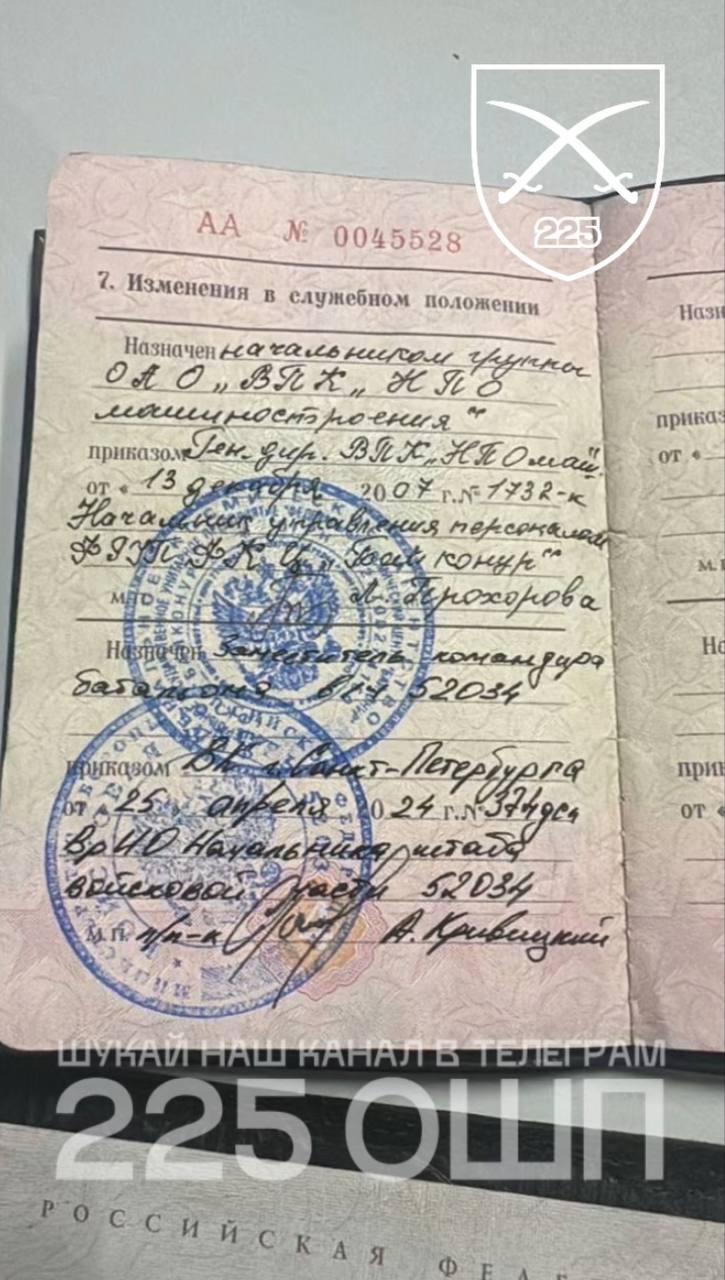 225
АА № 0045528
7. Изменения в служебном положении
Назначен начальником группы
ОАО „ВПК „НПО
машиностроения“
приказом Ген. дир. ВПК „НПОмаш.
от « 13 декабря 2007 г. № 1732-к
Начальник управления персоналом
ФГУП ФКЦ „Байконур“
М.П. Л. Прохорова
Назначен Заместитель командира
батальона в/ч 52034
приказом ВК г. Санкт-Петербурга
от 25 апреля 2024 г. №
ВрИО Начальника штаба
войсковой части 52034
М.П. п/п-к А. Кривицкий
Назн
приказ
от «
М.
На
прин
от «
ШУКАЙ НАШ КАНАЛ В ТЕЛЕГРАМ
225 ОШП
РОССИЙСКАЯ ФЕД